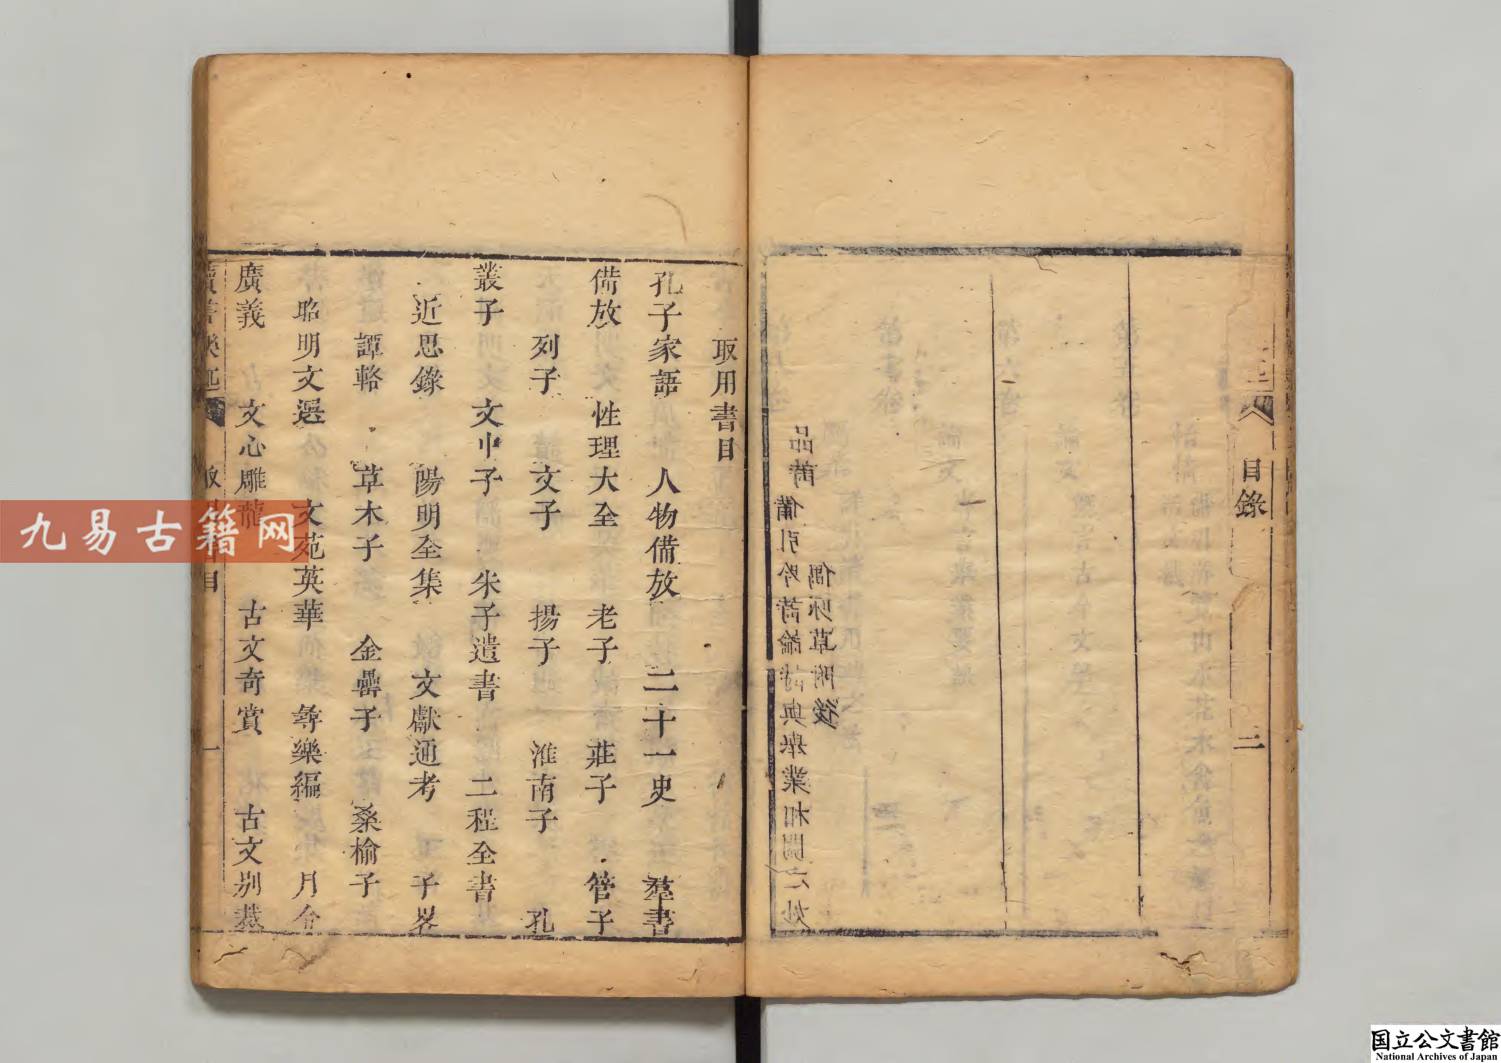 目錄
二
偶咏草附後
品詩
備引吟詩論詩與舉業相關之妙
取用書目
孔子家語 人物備放 二十一史 羣書
備放 性理大全 老子 莊子 管子
列子 文子 揚子 淮南子 孔
叢子 文中子 朱子遺書 二程全書
近思錄 陽明全集 文獻通考 子畧
譚輅 草木子 金罍子 桑榆子
昭明文選 文苑英華 尋樂編 月令
廣義 文心雕龍 古文奇賞 古文別裁
一
九易古籍网
国立公文書館
National Archives of Japan